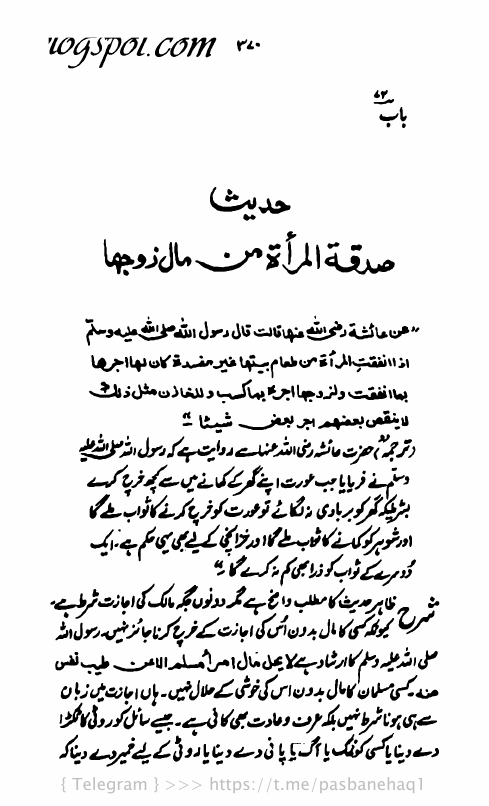 logspot.com ۳۷۰
۷۲
باب
حدیث
صدقة المرأة من مال زوجها
"عن عائشة رضی الله عنها قالت قال رسول الله صلی الله علیه وسلم
اذا انفقت المرأة من طعام بیتها غیر مفسدة کان لها اجرها
بما انفقت ولزوجها اجره بما کسب و للخازن مثل ذلک
لا ینقص بعضهم اجر بعض شیئا"
(ترجمہ) حضرت عائشہ رضی اللہ عنہا سے روایت ہے کہ رسول اللہ صلی اللہ علیہ
وسلم نے فرمایا جب عورت اپنے گھر کے کھانے میں سے کچھ خرچ کرے
بشرطیکہ گھر کو بربادی نہ لگائے تو عورت کو خرچ کرنے کا ثواب ملے گا
اور شوہر کو کمانے کا ثواب ملے گا اور خزانچی کے لیے بھی یہی حکم ہے۔ ایک
دوسرے کے ثواب کو ذرا بھی کم نہ کرے گا۔"
شرح ظاہر حدیث کا مطلب واضح ہے مگر دونوں جگہ مالک کی اجازت شرط ہے۔
کیونکہ کسی کا مال بدون اُس کی اجازت کے خرچ کرنا جائز نہیں۔ رسول اللہ
صلی اللہ علیہ وسلم کا ارشاد ہے لا یحل مال امرأ مسلم الا عن طیب نفس
منه۔ کسی مسلمان کا مال بدون اس کی خوشی کے حلال نہیں۔ ہاں اجازت میں زبان
سے ہی ہونا شرط نہیں بلکہ عرف و عادت بھی کافی ہے۔ جیسے سائل کو روٹی کا ٹکڑا
دے دینا یا کسی کو نمک یا آگ یا پانی دے دینا یا روٹی کے لیے خمیر دے دینا کہ
{ Telegram } >>> https://t.me/pasbanehaq1